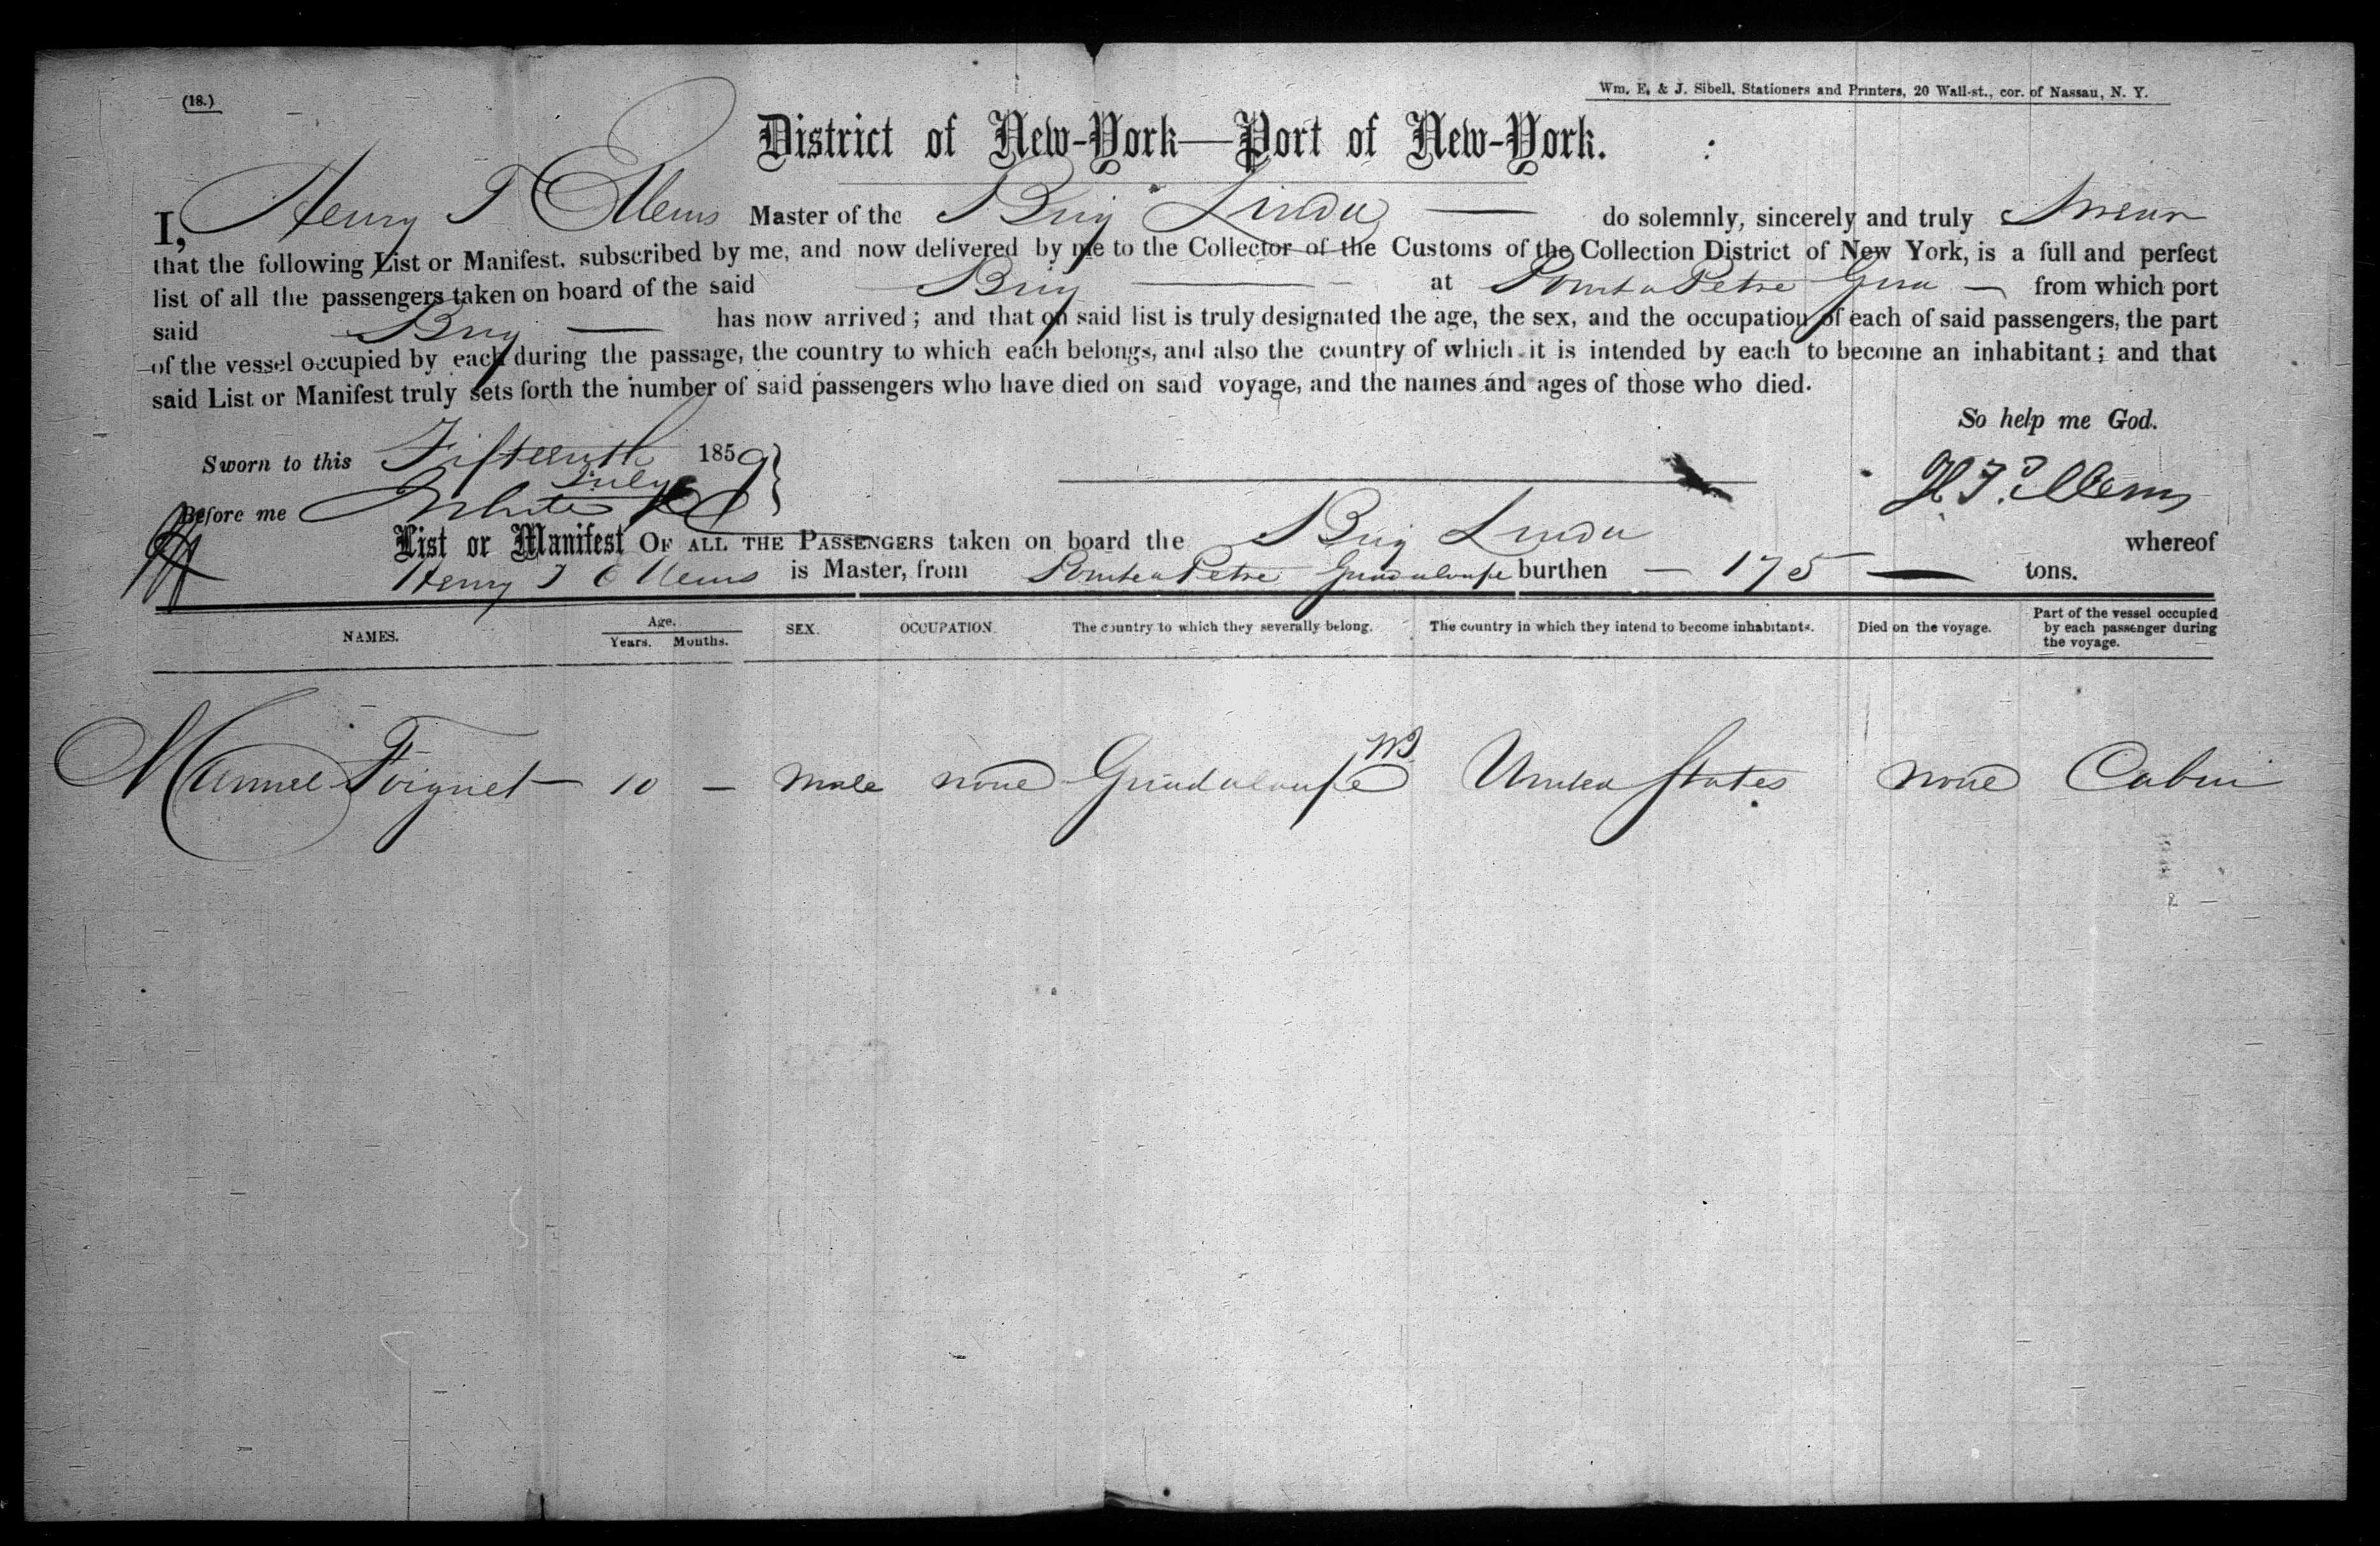 (18.)
Wm. E. & J. Sibell, Stationers and Printers, 20 Wall-st., cor. of Nassau, N. Y.
District of New-York—Port of New-York.
I, Henry T Ellems Master of the Brig Linda do solemnly, sincerely and truly Swear
that the following List or Manifest, subscribed by me, and now delivered by me to the Collector of the Customs of the Collection District of New York, is a full and perfect
list of all the passengers taken on board of the said Brig at Pointa Petre Gua from which port
said Brig has now arrived; and that on said list is truly designated the age, the sex, and the occupation of each of said passengers, the part
of the vessel occupied by each during the passage, the country to which each belongs, and also the country of which it is intended by each to become an inhabitant; and that
said List or Manifest truly sets forth the number of said passengers who have died on said voyage, and the names and ages of those who died.
So help me God.
Sworn to this Fifteenth July 1859
H. T. Ellems
Before me
List or Manifest OF ALL THE PASSENGERS taken on board the Brig Linda whereof
Henry T Ellems is Master, from Pointe a Petre Guadaloupe burthen — 175 — tons.
NAMES. Age. Years. Months. SEX. OCCUPATION. The country to which they severally belong. The country in which they intend to become inhabitants. Died on the voyage. Part of the vessel occupied by each passenger during the voyage.
Manuel Foignet — 10 — male none Guadaloupe WI United States none Cabin